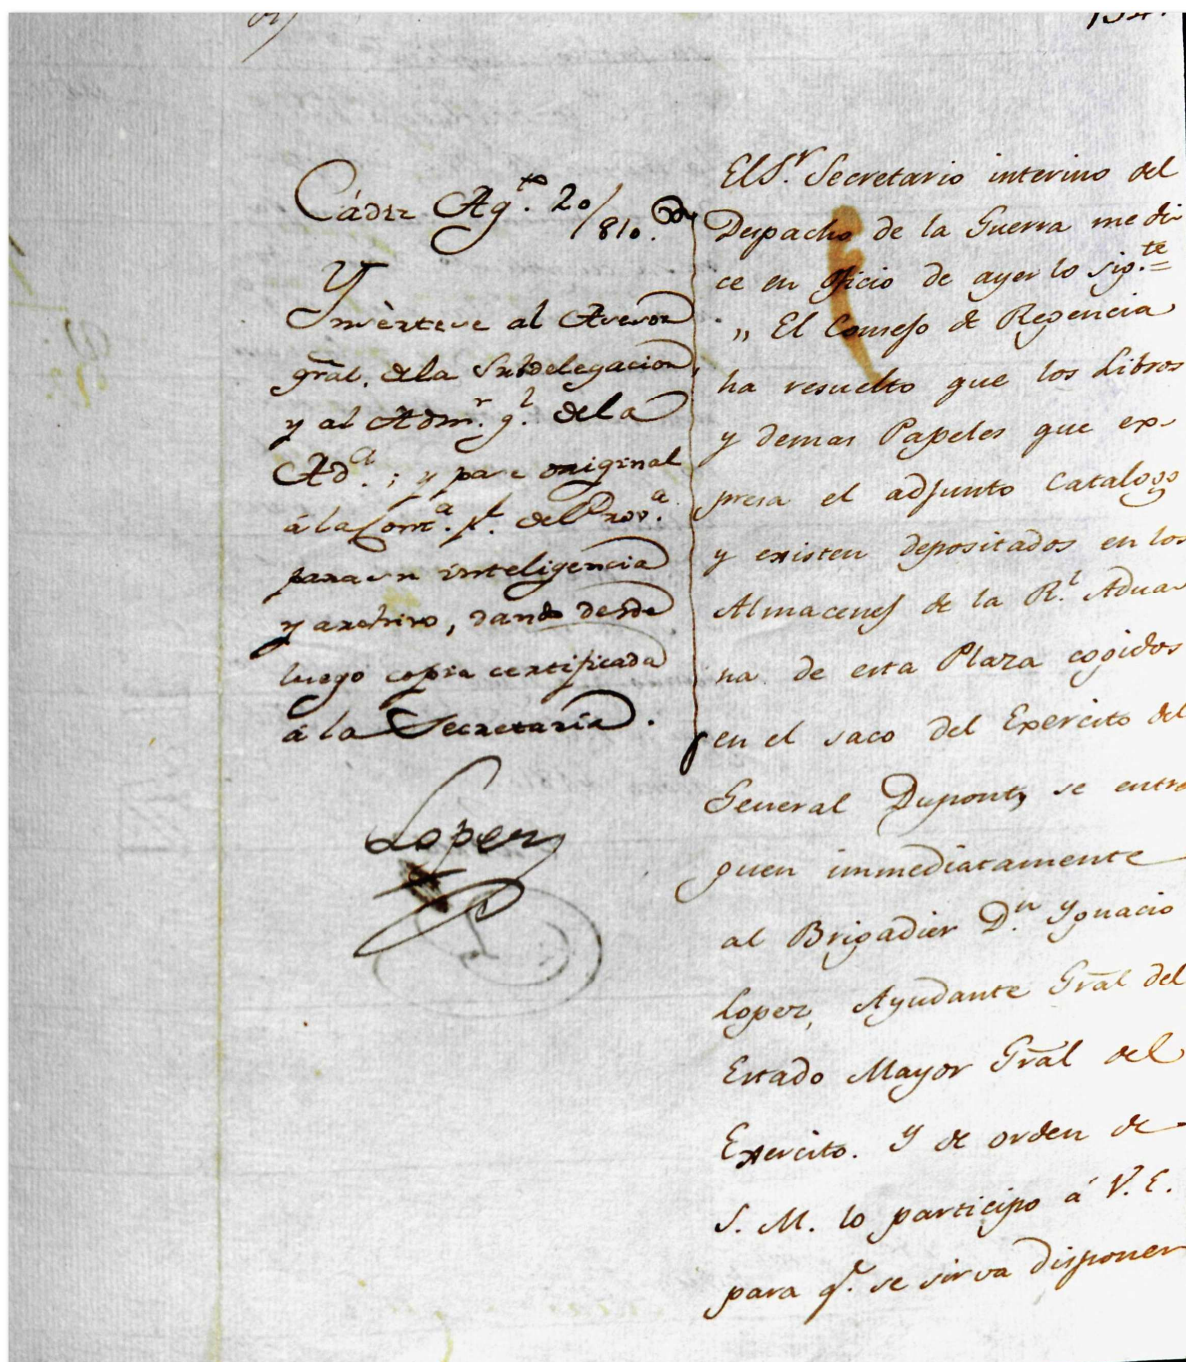 134.
Cádiz Ag.to 20/810.
Ynsèrtese al Asesor
gral. dela Subdelegacion,
y al Adm.r g.l dela
Ad.a; y pase original
á la Cont.a p.l del Prov.a
para su inteligencia
y archivo, dando desde
luego copia certificada
á la Secretaría.
Lopez
El S.r Secretario interino del
Despacho de la Guerra me di
ce en oficio de ayer lo sig.te
„ El Consejo de Regencia
ha resuelto que los Libros
y demas Papeles que ex-
presa el adjunto Catalogo
y existen depositados en los
Almacenes de la R.l Adua-
na de esta Plaza cogidos
en el saco del Exercito del
General Dupont, se entre
guen immediatamente
al Brigadier D.n Ygnacio
Lopez, Ayudante Gral del
Estado Mayor Gral del
Exercito. Y de orden de
S. M. lo participo á V. E.
para q.e se sirva disponer